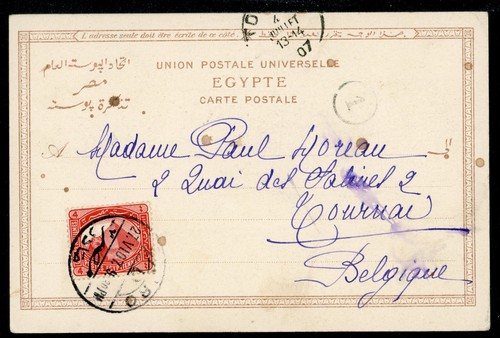 L'adresse seule doit être écrite de ce côté.
4
JUILLET
13-14
07
UNION POSTALE UNIVERSELLE
اتحاد البوستة العام
EGYPTE
مصر
CARTE POSTALE
تذكرة بوستة
A Madame Paul Moreau
2 Quai des Salines 2
Tournai
Belgique
4